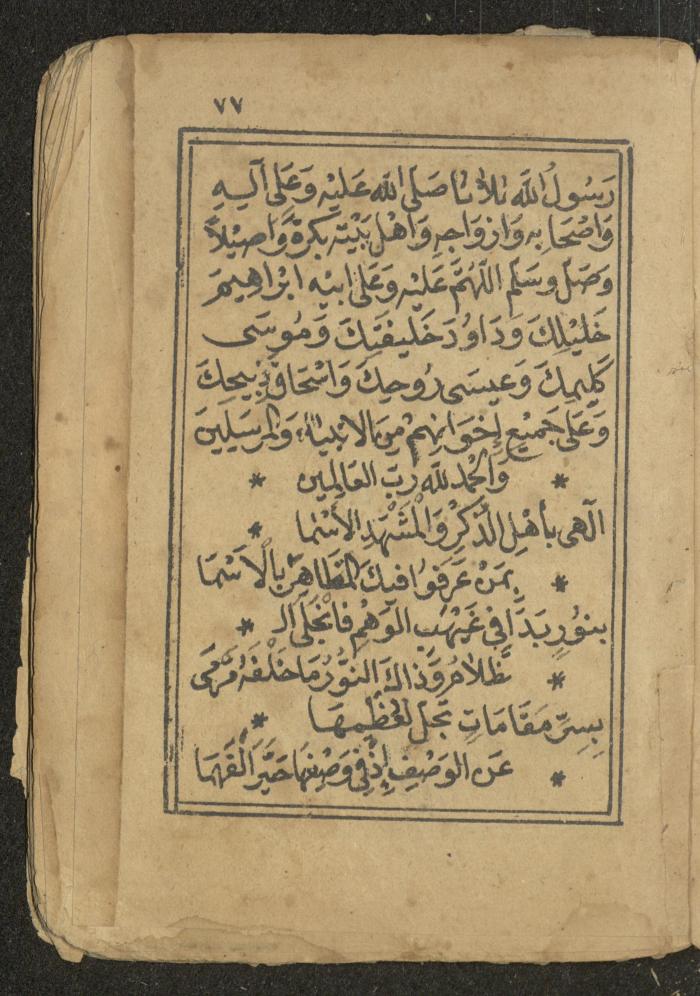 ٧٧
رَسُولُ اللّٰه ثلاثا صَلَى اللّٰه عَليْه وَعَلى آلِهِ
وَاصْحَابِه وَازوَاجِهِ وَاهْل بَيْتِه بُكرَةً وَاصِيْلاً
وَصَلّ وسَلّم اللّٰهُمَّ عَليْه وَعَلى ابيْه ابْرَاهِيمَ
خَليْلِكَ وَدَاوُدَ خَليفَتِكَ وَمُوسَى
كَلِيمِكَ وَعيسَى رُوحِكَ وَاسْحَاق ذَبيحِكَ
وَعَلى جَميْعِ إخوَانِهمْ مِنَ الانبيَاءِ وَالمرسَلِينَ
* وَالْحَمْدُ للّٰه رَبّ العَالمِين *
الَهى بأهْلِ الذِّكرْ وَالْمَشْهَدِ الأَسْمَا *
* بمَنْ عَرَفوُا فيكَ المَظَاهِرَ بالْاَسْمَا
بنوُرٍ بَدَا فى غَيْهَبِ الوَهْمِ فانجَلَى الـ *
* ظَلامُ وَذاكَ النوُّرُ مَا خَلْفَهُ مَرْمَى
بِسِرِّ مَقَامَاتٍ تجَلّ لِعُظْمِهَا *
* عَن الوَصْفِ إذْ فى وَصْفِهَا حَيَّرَ الْفَهْمَا